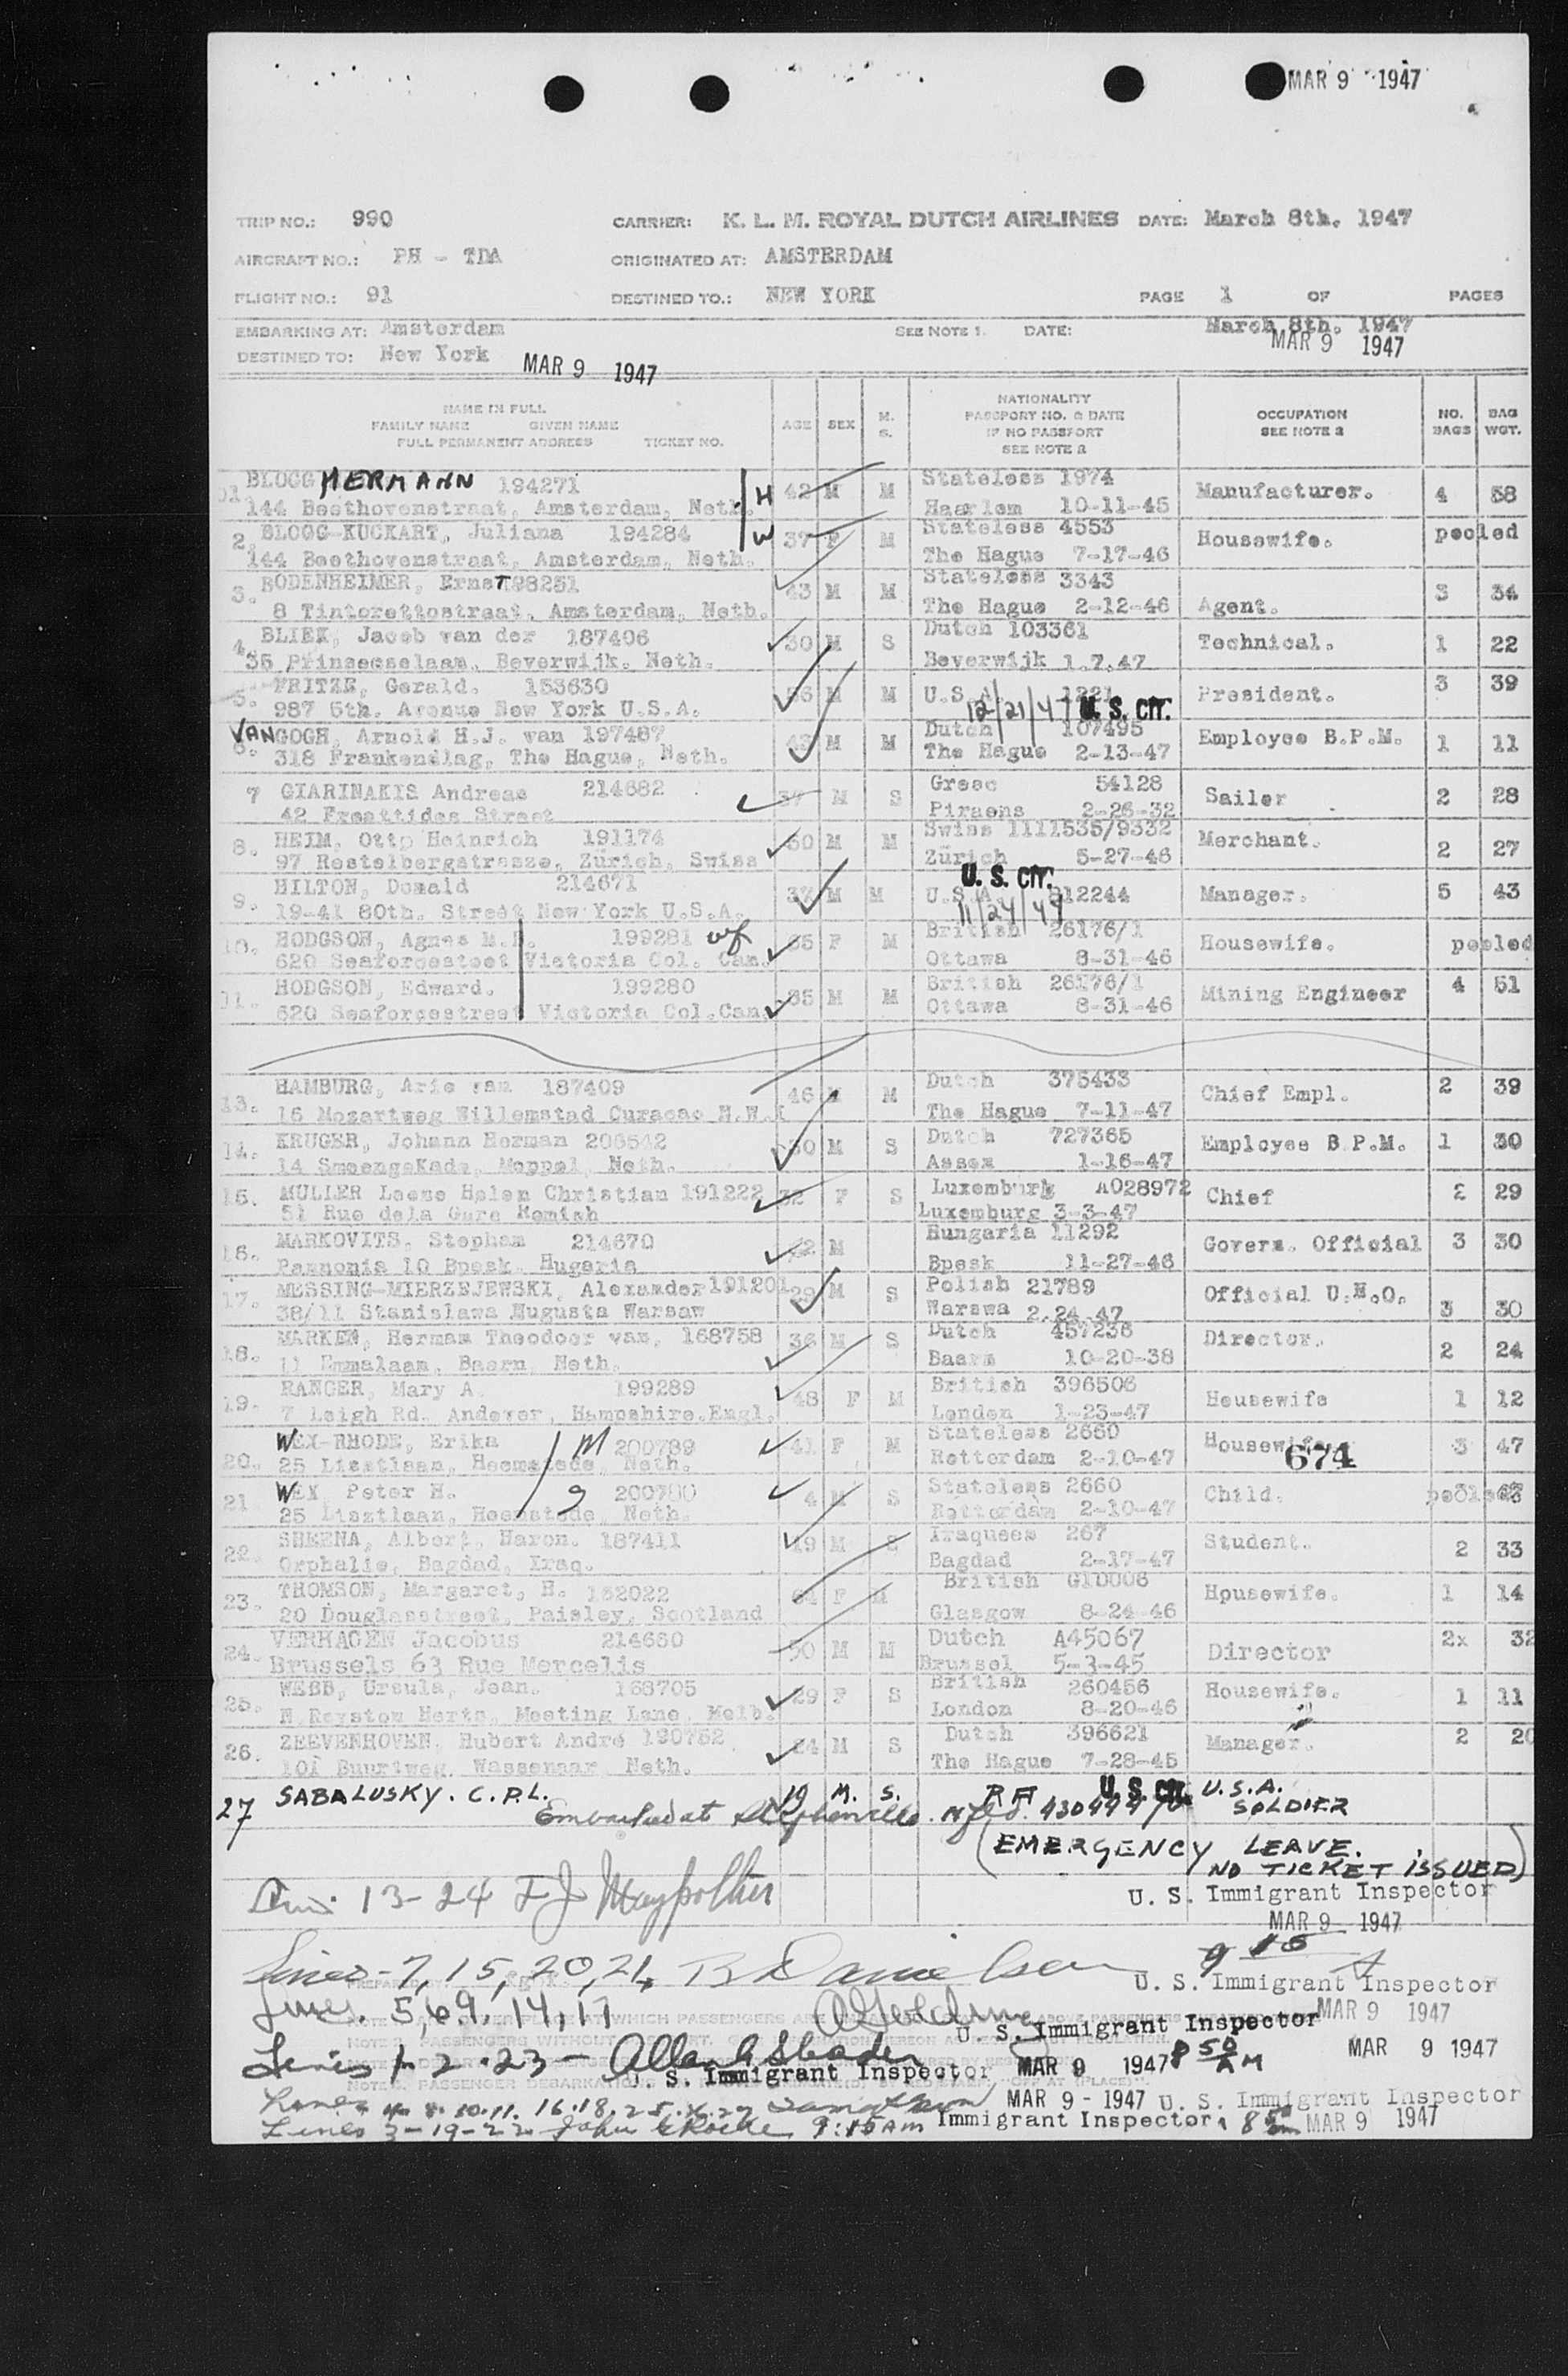 MAR 9 1947
TRIP NO.: 990 CARRIER: K. L. M. ROYAL DUTCH AIRLINES DATE: March 8th. 1947
AIRCRAFT NO.: PH - TDA ORIGINATED AT: AMSTERDAM
FLIGHT NO.: 91 DESTINED TO.: NEW YORK PAGE 1 OF PAGES
EMBARKING AT: Amsterdam SEE NOTE 1. DATE: March 8th. 1947
DESTINED TO: New York MAR 9 1947 MAR 9 1947
NAME IN FULL
FAMILY NAME GIVEN NAME
FULL PERMANENT ADDRESS TICKET NO.
AGE SEX M. S.
NATIONALITY
PASSPORT NO. & DATE
IF NO PASSPORT
SEE NOTE 2
OCCUPATION
SEE NOTE 2
NO. BAGS
BAG WGT.
01. BLOGG HERMANN 194271 H 42 M M Stateless 1974 Manufacturer. 4 58
144 Beethovenstraat, Amsterdam, Neth. Haarlem 10-11-45
2. BLOGG-KUCKART, Juliana 194284 W 37 F M Stateless 4553 Housewife. pooled
144 Beethovenstraat, Amsterdam, Neth. The Hague 7-17-46
3. BODENHEIMER, Ernst 198251 43 M M Stateless 3343 Agent. 3 34
8 Tintorettostraat, Amsterdam, Neth. The Hague 2-12-46
4. BLIEK, Jacob van der 187406 30 M S Dutch 103361 Technical. 1 22
35 Prinsesselaan. Beverwijk. Neth. Beverwijk 1.7.47
5. FRITZE, Gerald. 153630 M M U.S.A. 1221 President. 3 39
987 5th. Avenue New York U.S.A. 12/21/47 U. S. CIT.
6. VAN GOGH, Arnold H.J. van 197487 43 M M Dutch 107495 Employee B.P.M. 1 11
318 Frankenslag, The Hague, Neth. The Hague 2-13-47
7 GIARINAKIS Andreas 214682 37 M S Greec 54128 Sailer 2 28
42 Freattidos Street Piraens 2-26-32
8. HEIM, Otto Heinrich 191174 50 M M Swiss 1111535/9332 Merchant. 2 27
97 Restelbergstrasze, Zürich, Swiss Zürich 5-27-46
9. HILTON, Donald 214671 37 M M U.S.A. 812244 Manager. 5 43
19-41 80th. Street New York U.S.A. U. S. CIT. 11/24/47
10. HODGSON, Agnes M. 199281 wf 35 F M British 26176/1 Housewife. pooled
620 Seaforcesteet Victoria Col. Can. Ottawa 8-31-46
11. HODGSON, Edward. 199280 35 M M British 26176/1 Mining Engineer 4 51
620 Seaforcestreet Victoria Col.Can. Ottawa 8-31-46
13. HAMBURG, Arie van 187409 46 M M Dutch 375433 Chief Empl. 2 39
16 Mozartweg Willemstad Curacao N.W.I The Hague 7-11-47
14. KRUGER, Johann Herman 206542 30 M S Dutch 727365 Employee B.P.M. 1 30
14 SmeengeKade, Meppel, Neth. Assen 1-16-47
15. MULLER Leene Helen Christian 191222 32 F S Luxemburg A028972 Chief 2 29
51 Rue dela Gare Remish Luxemburg 3-3-47
16. MARKOVITS, Stephan 214670 42 M Hungaria 11292 Govern. Official 3 30
Pannonia 10 Bpesk. Hugaria Bpesk 11-27-46
17. MESSING-MIERZEJEWSKI, Alexander 191201 29 M S Polish 21789 Official U.N.O. 3 30
38/11 Stanislawa Nugusta Warsaw Warswa 2.24.47
18. MARKEN, Herman Theodoor van. 168758 36 M S Dutch 457236 Director. 2 24
11 Emmalaan, Baarn, Neth. Baarn 10-20-38
19. RANGER, Mary A. 199289 48 F M British 396506 Housewife 1 12
7 Leigh Rd. Andover, Hampshire.Engl. London 1-23-47
20. WEX-RHODE, Erika M 200789 41 F M Stateless 2660 Housewife. 3 47
25 Lisztlaan, Heemstede, Neth. Rotterdam 2-10-47 674
21 WEX, Peter H. 200780 4 M S Stateless 2660 Child. pooled
25 Lisztlaan, Heemstede, Neth. Rotterdam 2-10-47
22. SHEENA, Albert, Haron. 187411 19 M S Iraquees 267 Student. 2 33
Orphalie, Bagdad, Iraq. Bagdad 2-17-47
23. THOMSON, Margaret, H. 152022 64 F M British G10006 Housewife. 1 14
20 Douglasstreet, Paisley, Scotland Glasgow 8-24-46
24. VERHAGEN Jacobus 214680 50 M M Dutch A45067 Director 2x 32
Brussels 63 Rue Mercelis Brussel 5-3-45
25. WEBB, Ursula, Jean. 168705 29 F S British 260456 Housewife. 1 11
N.Royston Herts, Meeting Lane. Melb. London 8-20-46
26. ZEEVENHOVEN, Hubert André 190752 24 M S Dutch 396621 Manager. 2 20
101 Buurtweg, Wassenaar, Neth. The Hague 7-28-45
27 SABALUSKY. C.P.L. 19 M. S. RA U. S. CIT. U.S.A.
Embarked at Stephenville. Nfld. SOLDIER
(EMERGENCY LEAVE.
NO TICKET ISSUED)
13-24 U. S. Immigrant Inspector
MAR 9 - 1947
Lines - 7, 15, 20, 21, U. S. Immigrant Inspector
Lines. 5, 6, 9, 14, 17 MAR 9 1947
U. S. Immigrant Inspector
Lines 1- 2 - 23 - MAR 9 1947
U. S. Immigrant Inspector MAR 9 1947 8 50 AM
Lines 16. 18. MAR 9 - 1947 U. S. Immigrant Inspector
Lines 3 - 19 - 22 John 9:15 AM Immigrant Inspector MAR 9 1947